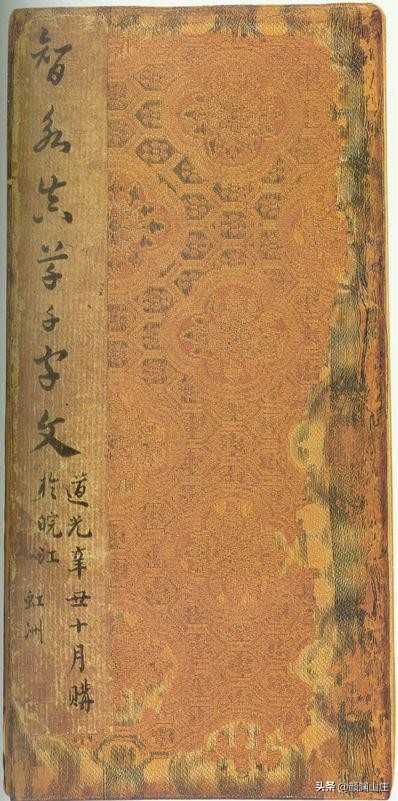 智永真草千字文
道光辛丑十月購
於皖江 虹洲
头条 @颜渊山庄